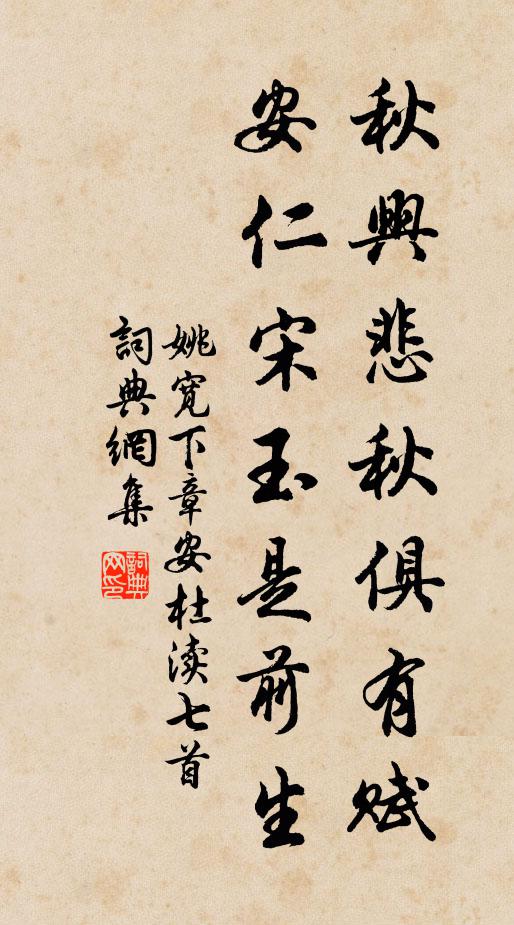 秋興悲秋俱有賦
安仁宋玉是前生
姚寬下章安杜渎七首
詞典網集
詞典網印